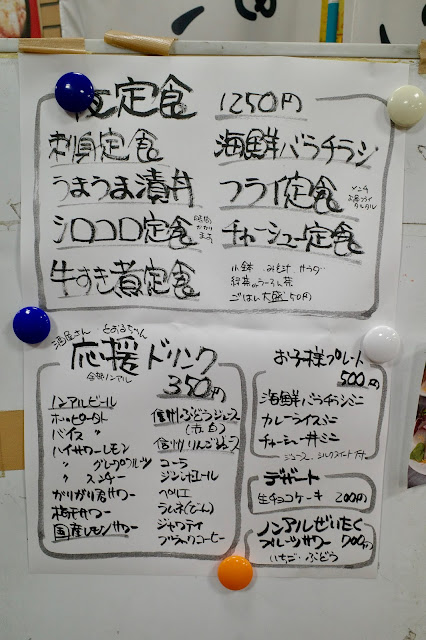 定食 1250円
刺身定食
海鮮バラチラシ
うまうま漬丼
フライ定食
シロコロ定食
チャーシュー定食
牛すき煮定食
小鉢 みそ汁 サラダ
ごはん大盛 50円
酒屋さん とおるちゃん
応援ドリンク
全部ノンアル
350円
ノンアルビール
ホッピータート
バイス 〃
ハイサワーレモン
〃 グレープフルーツ
〃 スンチー
がりがり君サワー
梅干サワー
国産レモンサワー
信州ぶどうジュース
信州りんごジュース
コーラ
ジンジャエール
ペリエ
ラムネ(びん)
ジャワティ
ブラックコーヒー
お子様プレート
500円
海鮮バラチラシミニ
カレーライスミニ
チャーシュー丼ミニ
デザート
生チョコケーキ 200円
ノンアルぜいたく
フルーツサワー 700円
いちご・ぶどう